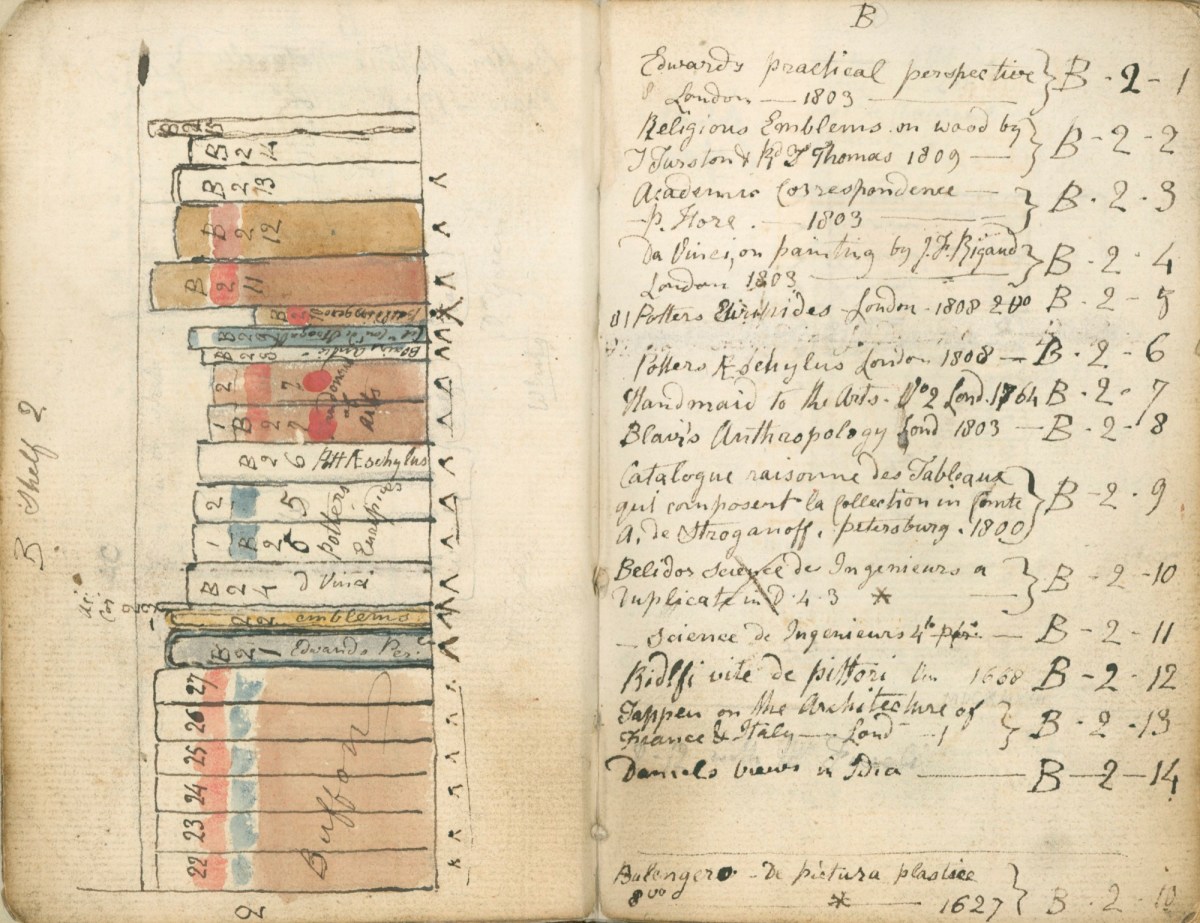 B Shelf 2
B 2 15
B 2 14
B 2 13
B 2 12
B 2 11
B 2 9
B 2 8
2 7
1 B 2 7
arts
B 2 6 Æschylus
2 5
1 B 2 5 Potters Euripides
B 2 4 d Vinci
2 2 emblems
B 2 1 Edwards Per.
27
26
25
24
23
22
Buffon
2
B
Edwards practical perspective
London — 1803
B - 2 - 1
Religious Emblems on wood by
J Turston & Rd J Thomas 1809 —
B - 2 - 2
Academic Correspondence —
P. Hore. — 1803
B - 2 - 3
Da Vinci, on painting by J. F. Rigaud
London 1803
B - 2 - 4
Potters Euripides - London - 1808 2 vo
B - 2 - 5
Potters Æschylus London 1808 — B - 2 - 6
Handmaid to the Arts - Vo 2 Lond. 1764 B - 2 - 7
Blair's Anthropology Lond 1803 — B - 2 - 8
Catalogue raisonne des Tableaux
qui composent la Collection in Comte
A. de Stroganoff, petersburg. 1800
B - 2 - 9
Belidor Science des Ingenieurs a
Duplicate in D. 4. 3 *
B - 2 - 10
— Science de Ingenieurs 4to — B - 2 - 11
Ridlfi vite de pittori 1668 B - 2 - 12
Tappen on the Architecture of
France & Italy — Lond
B - 2 - 13
Daniels views in Idia — B - 2 - 14
Bulengero - De pictura plastice
8vo * 1627
B - 2 - 10